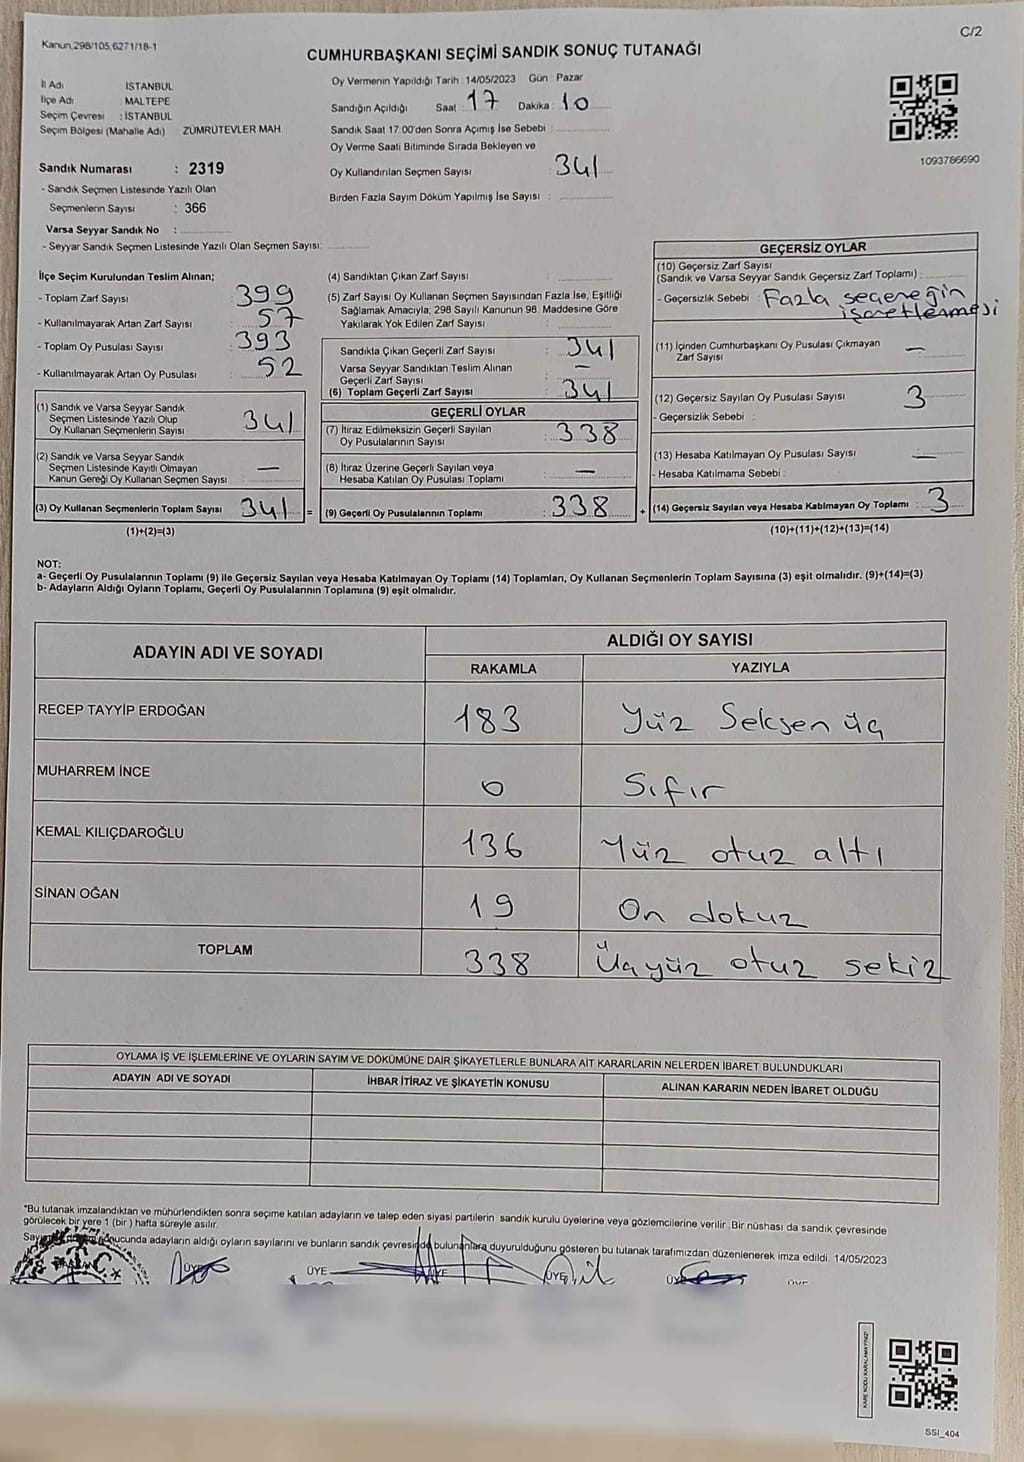 Kanun,298/105,6271/18-1
C/2
CUMHURBAŞKANI SEÇİMİ SANDIK SONUÇ TUTANAĞI
İl Adı İSTANBUL
İlçe Adı MALTEPE
Seçim Çevresi : İSTANBUL
Seçim Bölgesi (Mahalle Adı) ZÜMRÜTEVLER MAH.
Sandık Numarası : 2319
- Sandık Seçmen Listesinde Yazılı Olan
Seçmenlerin Sayısı : 366
Varsa Seyyar Sandık No :
- Seyyar Sandık Seçmen Listesinde Yazılı Olan Seçmen Sayısı:
Oy Vermenin Yapıldığı Tarih : 14/05/2023 Gün : Pazar
Sandığın Açıldığı Saat : 17 Dakika : 10
Sandık Saat 17.00'den Sonra Açımış İse Sebebi :
Oy Verme Saati Bitiminde Sırada Bekleyen ve
Oy Kullandırılan Seçmen Sayısı : 341
Birden Fazla Sayım Döküm Yapılmış İse Sayısı :
1093786690
İlçe Seçim Kurulundan Teslim Alınan;
- Toplam Zarf Sayısı : 399
- Kullanılmayarak Artan Zarf Sayısı : 57
- Toplam Oy Pusulası Sayısı : 393
- Kullanılmayarak Artan Oy Pusulası : 52
(1) Sandık ve Varsa Seyyar Sandık
Seçmen Listesinde Yazılı Olup
Oy Kullanan Seçmenlerin Sayısı : 341
(2) Sandık ve Varsa Seyyar Sandık
Seçmen Listesinde Kayıtlı Olmayan
Kanun Gereği Oy Kullanan Seçmen Sayısı : —
(3) Oy Kullanan Seçmenlerin Toplam Sayısı : 341 =
(1)+(2)=(3)
(4) Sandıktan Çıkan Zarf Sayısı :
(5) Zarf Sayısı Oy Kullanan Seçmen Sayısından Fazla İse, Eşitliği
Sağlamak Amacıyla; 298 Sayılı Kanunun 98. Maddesine Göre
Yakılarak Yok Edilen Zarf Sayısı :
Sandıkta Çıkan Geçerli Zarf Sayısı : 341
Varsa Seyyar Sandıktan Teslim Alınan
Geçerli Zarf Sayısı : —
(6) Toplam Geçerli Zarf Sayısı : 341
GEÇERLİ OYLAR
(7) İtiraz Edilmeksizin Geçerli Sayılan
Oy Pusulalarının Sayısı : 338
(8) İtiraz Üzerine Geçerli Sayılan veya
Hesaba Katılan Oy Pusulası Toplamı : —
(9) Geçerli Oy Pusulalarının Toplamı : 338 +
GEÇERSİZ OYLAR
(10) Geçersiz Zarf Sayısı
(Sandık ve Varsa Seyyar Sandık Geçersiz Zarf Toplamı) :
- Geçersizlik Sebebi : Fazla seçeneğin
işaretlenmesi
(11) İçinden Cumhurbaşkanı Oy Pusulası Çıkmayan
Zarf Sayısı : —
(12) Geçersiz Sayılan Oy Pusulası Sayısı : 3
- Geçersizlik Sebebi :
(13) Hesaba Katılmayan Oy Pusulası Sayısı : —
- Hesaba Katılmama Sebebi :
(14) Geçersiz Sayılan veya Hesaba Katılmayan Oy Toplamı : 3
(10)+(11)+(12)+(13)=(14)
NOT:
a- Geçerli Oy Pusulalarının Toplamı (9) ile Geçersiz Sayılan veya Hesaba Katılmayan Oy Toplamı (14) Toplamları, Oy Kullanan Seçmenlerin Toplam Sayısına (3) eşit olmalıdır. (9)+(14)=(3)
b- Adayların Aldığı Oyların Toplamı, Geçerli Oy Pusulalarının Toplamına (9) eşit olmalıdır.
ADAYIN ADI VE SOYADI
ALDIĞI OY SAYISI
RAKAMLA YAZIYLA
RECEP TAYYİP ERDOĞAN 183 Yüz Seksen üç
MUHARREM İNCE 0 Sıfır
KEMAL KILIÇDAROĞLU 136 Yüz otuz altı
SİNAN OĞAN 19 On dokuz
TOPLAM 338 Üçyüz otuz sekiz
OYLAMA İŞ VE İŞLEMLERİNE VE OYLARIN SAYIM VE DÖKÜMÜNE DAİR ŞİKAYETLERLE BUNLARA AİT KARARLARIN NELERDEN İBARET BULUNDUKLARI
ADAYIN ADI VE SOYADI İHBAR İTİRAZ VE ŞİKAYETİN KONUSU ALINAN KARARIN NEDEN İBARET OLDUĞU
"Bu tutanak imzalandıktan ve mühürlendikten sonra seçime katılan adayların ve talep eden siyasi partilerin sandık kurulu üyelerine veya gözlemcilerine verilir. Bir nüshası da sandık çevresinde
görülecek bir yere 1 (bir) hafta süreyle asılır.
sonucunda adayların aldığı oyların sayılarını ve bunların sandık çevresinde bulunanlara duyurulduğunu gösteren bu tutanak tarafımızdan düzenlenerek imza edildi. 14/05/2023
ÜYE ÜYE ÜYE ÜYE ÜYE ÜYE
KARE KODU KARALAMAYINIZ!
SSI_404